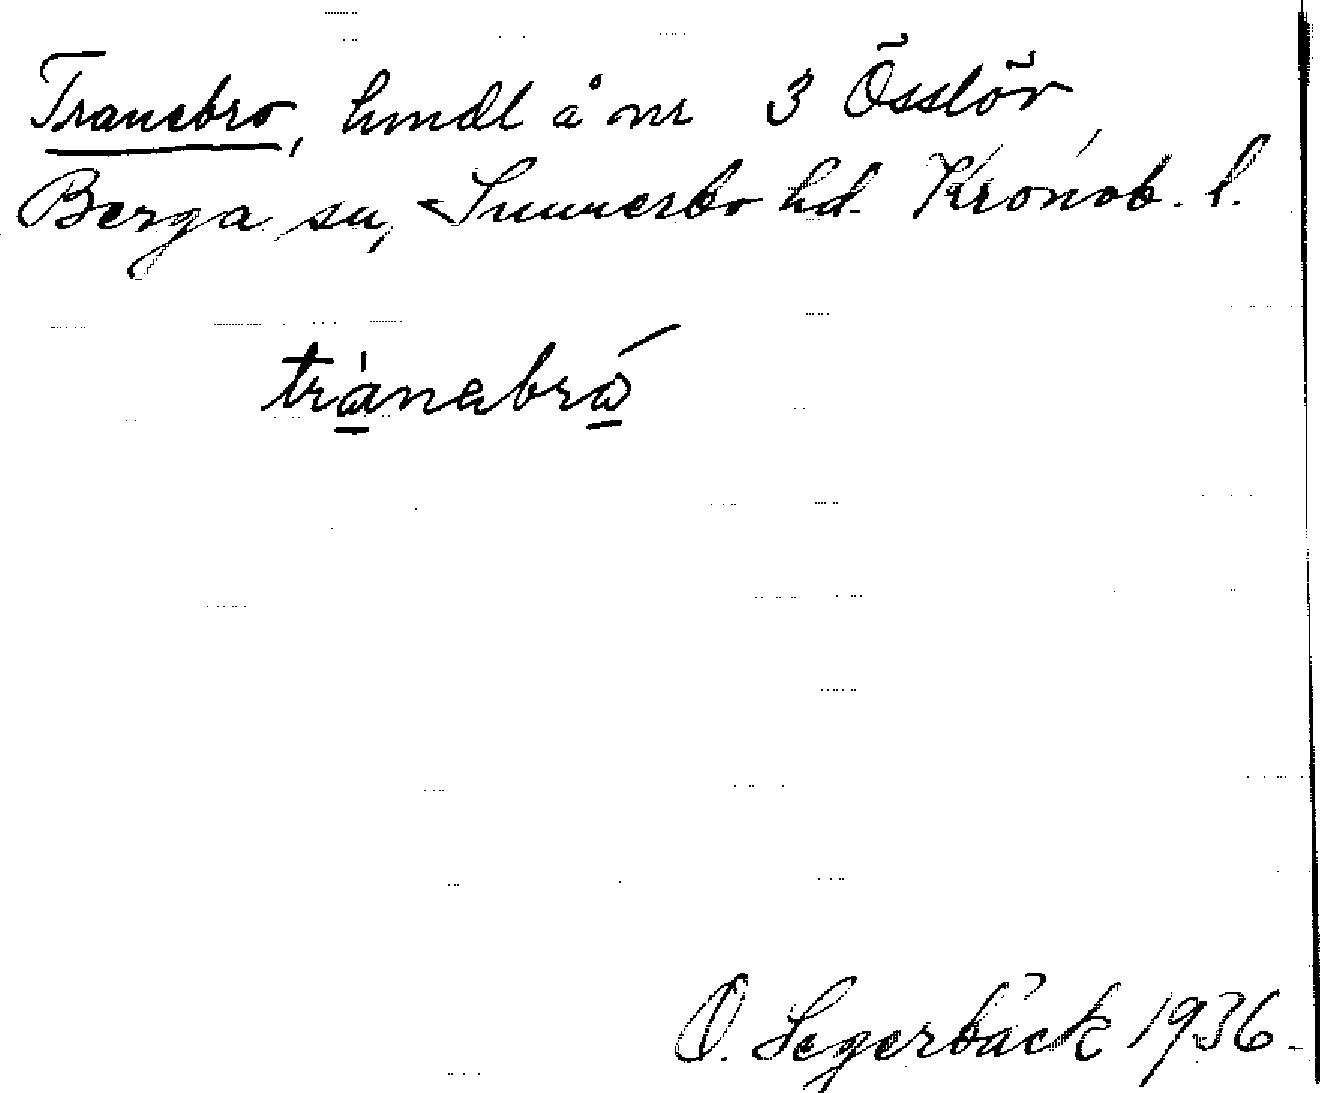 Tranebro, hmdl å nr 3 Össlöv
Berga sn, Sunnerbo hd. Kronob. l.
trànabrǻ
O. Segerbäck 1936.